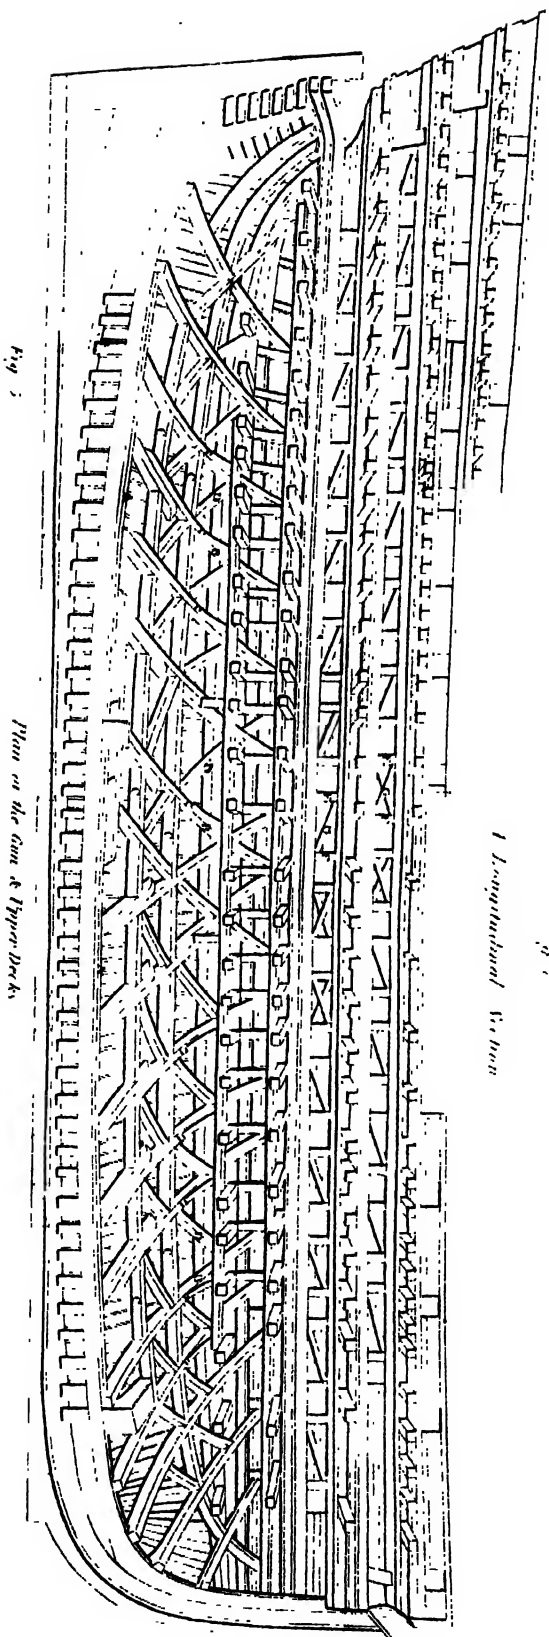 Longitudinal Section
Fig.
Plan on the Gun & Upper Decks